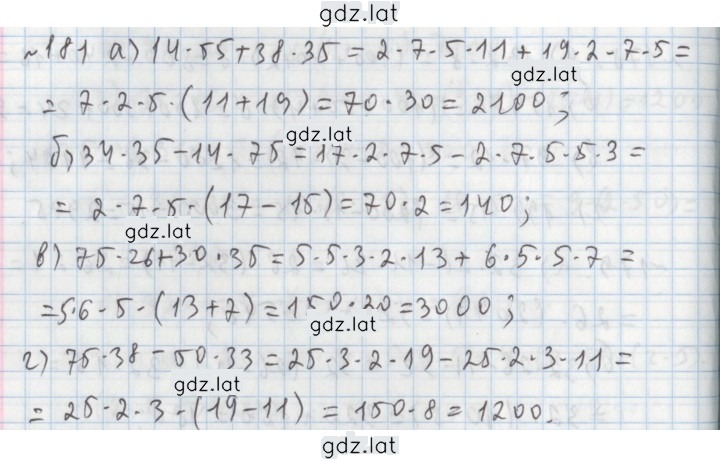 gdz.lat
№181 а) 14·55+38·35 = 2·7·5·11 + 19·2·7·5 =
gdz.lat
= 7·2·5·(11+19) = 70·30 = 2100;
gdz.lat
б) 34·35-14·75 = 17·2·7·5 - 2·7·5·5·3 =
= 2·7·5·(17-15) = 70·2 = 140;
gdz.lat
в) 75·26+30·35 = 5·5·3·2·13 + 6·5·5·7 =
= 5·6·5·(13+7) = 150·20 = 3000;
gdz.lat
г) 75·38 - 50·33 = 25·3·2·19 - 25·2·3·11 =
gdz.lat
= 25·2·3·(19-11) = 150·8 = 1200.
gdz.lat